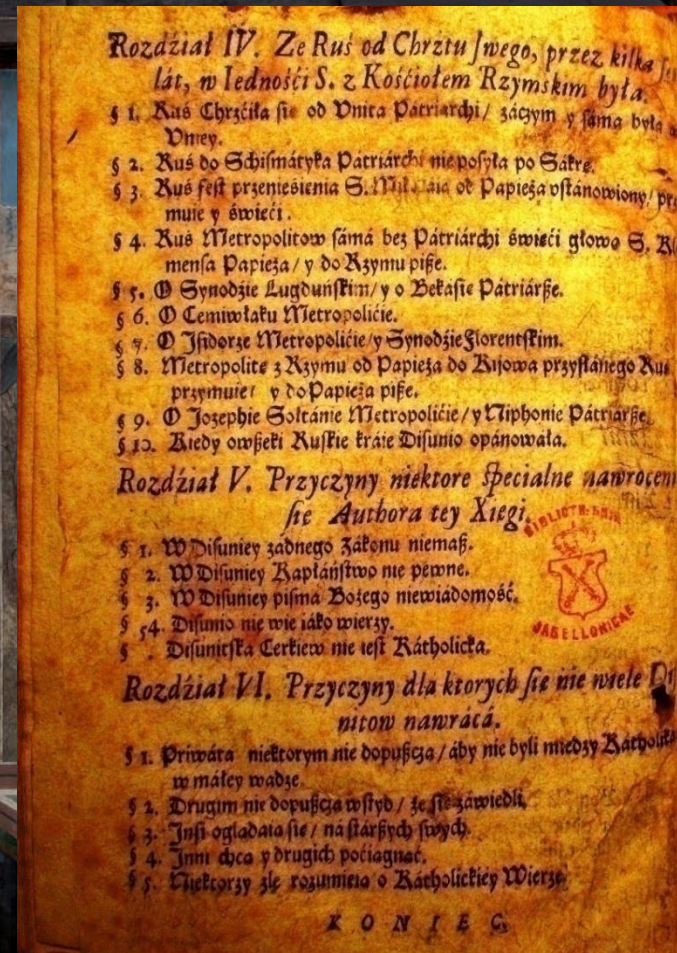 Rozdźiał IV. Ze Ruś od Chrztu swego, przez kilka
lát, w Iednośći S. z Kośćiołem Rzymskim była.
§ 1. Ruś Chrzćiłá się od Vnitá Pátriárchi / záczym y sámá byłá w
Vniey.
§ 2. Ruś do Schismátyká Pátriárchi nie posyła po Sákrę.
§ 3. Ruś fest przenieśienia S. Mikołaiá od Papieżá vstánowiony /
muie y święći.
§ 4. Ruś Metropolitow sámá bez Pátriárchi święći głową S.
mensá Papieżá / y do Rzymu pisze.
§ 5. O Synodźie Lugduńskim / y o Bekaśie Pátriársze.
§ 6. O Cemiwłaku Metropolićie.
§ 7. O Isidorze Metropolićie / y Synodźie Florentskim.
§ 8. Metropolitę z Rzymu od Papieżá do Kijowá przysłánego Ruś
przymuie / y do Papieżá pisze.
§ 9. O Jozephie Sołtanie Metropolićie / y Niphonie Pátriársze.
§ 10. Kiedy owszeki Ruskie kráie Disunio opánowáłá.
Rozdźiał V. Przyczyny niektore specialne nawrocenia
się Authora tey Xięgi.
§ 1. W Disuniey żadnego Zakonu niemasz.
§ 2. W Disuniey Kápłáństwo nie pewne.
§ 3. W Disuniey pismá Bożego niewiádomość.
§ 54. Disunio nie wie iáko wierzy.
§ . Disunitska Cerkiew nie iest Kátholicka.
BIBLIOTH:
JAGELLONICAE
Rozdźiał VI. Przyczyny dla ktorych się nie wiele
nitow nawráca.
§ 1. Priwata niektorym nie dopuszcza / áby nie byli między Kátholiká
w máłey wadze.
§ 2. Drugim nie dopuszcza wstyd / że się záwiedli.
§ 3. Inśi ogládáią się / ná stárszych swych.
§ 4. Inni chcą y drugich poćiągnąć.
§ 5. Niektorzy źle rozumieią o Kátholickiey Wierze.
KONIEC.